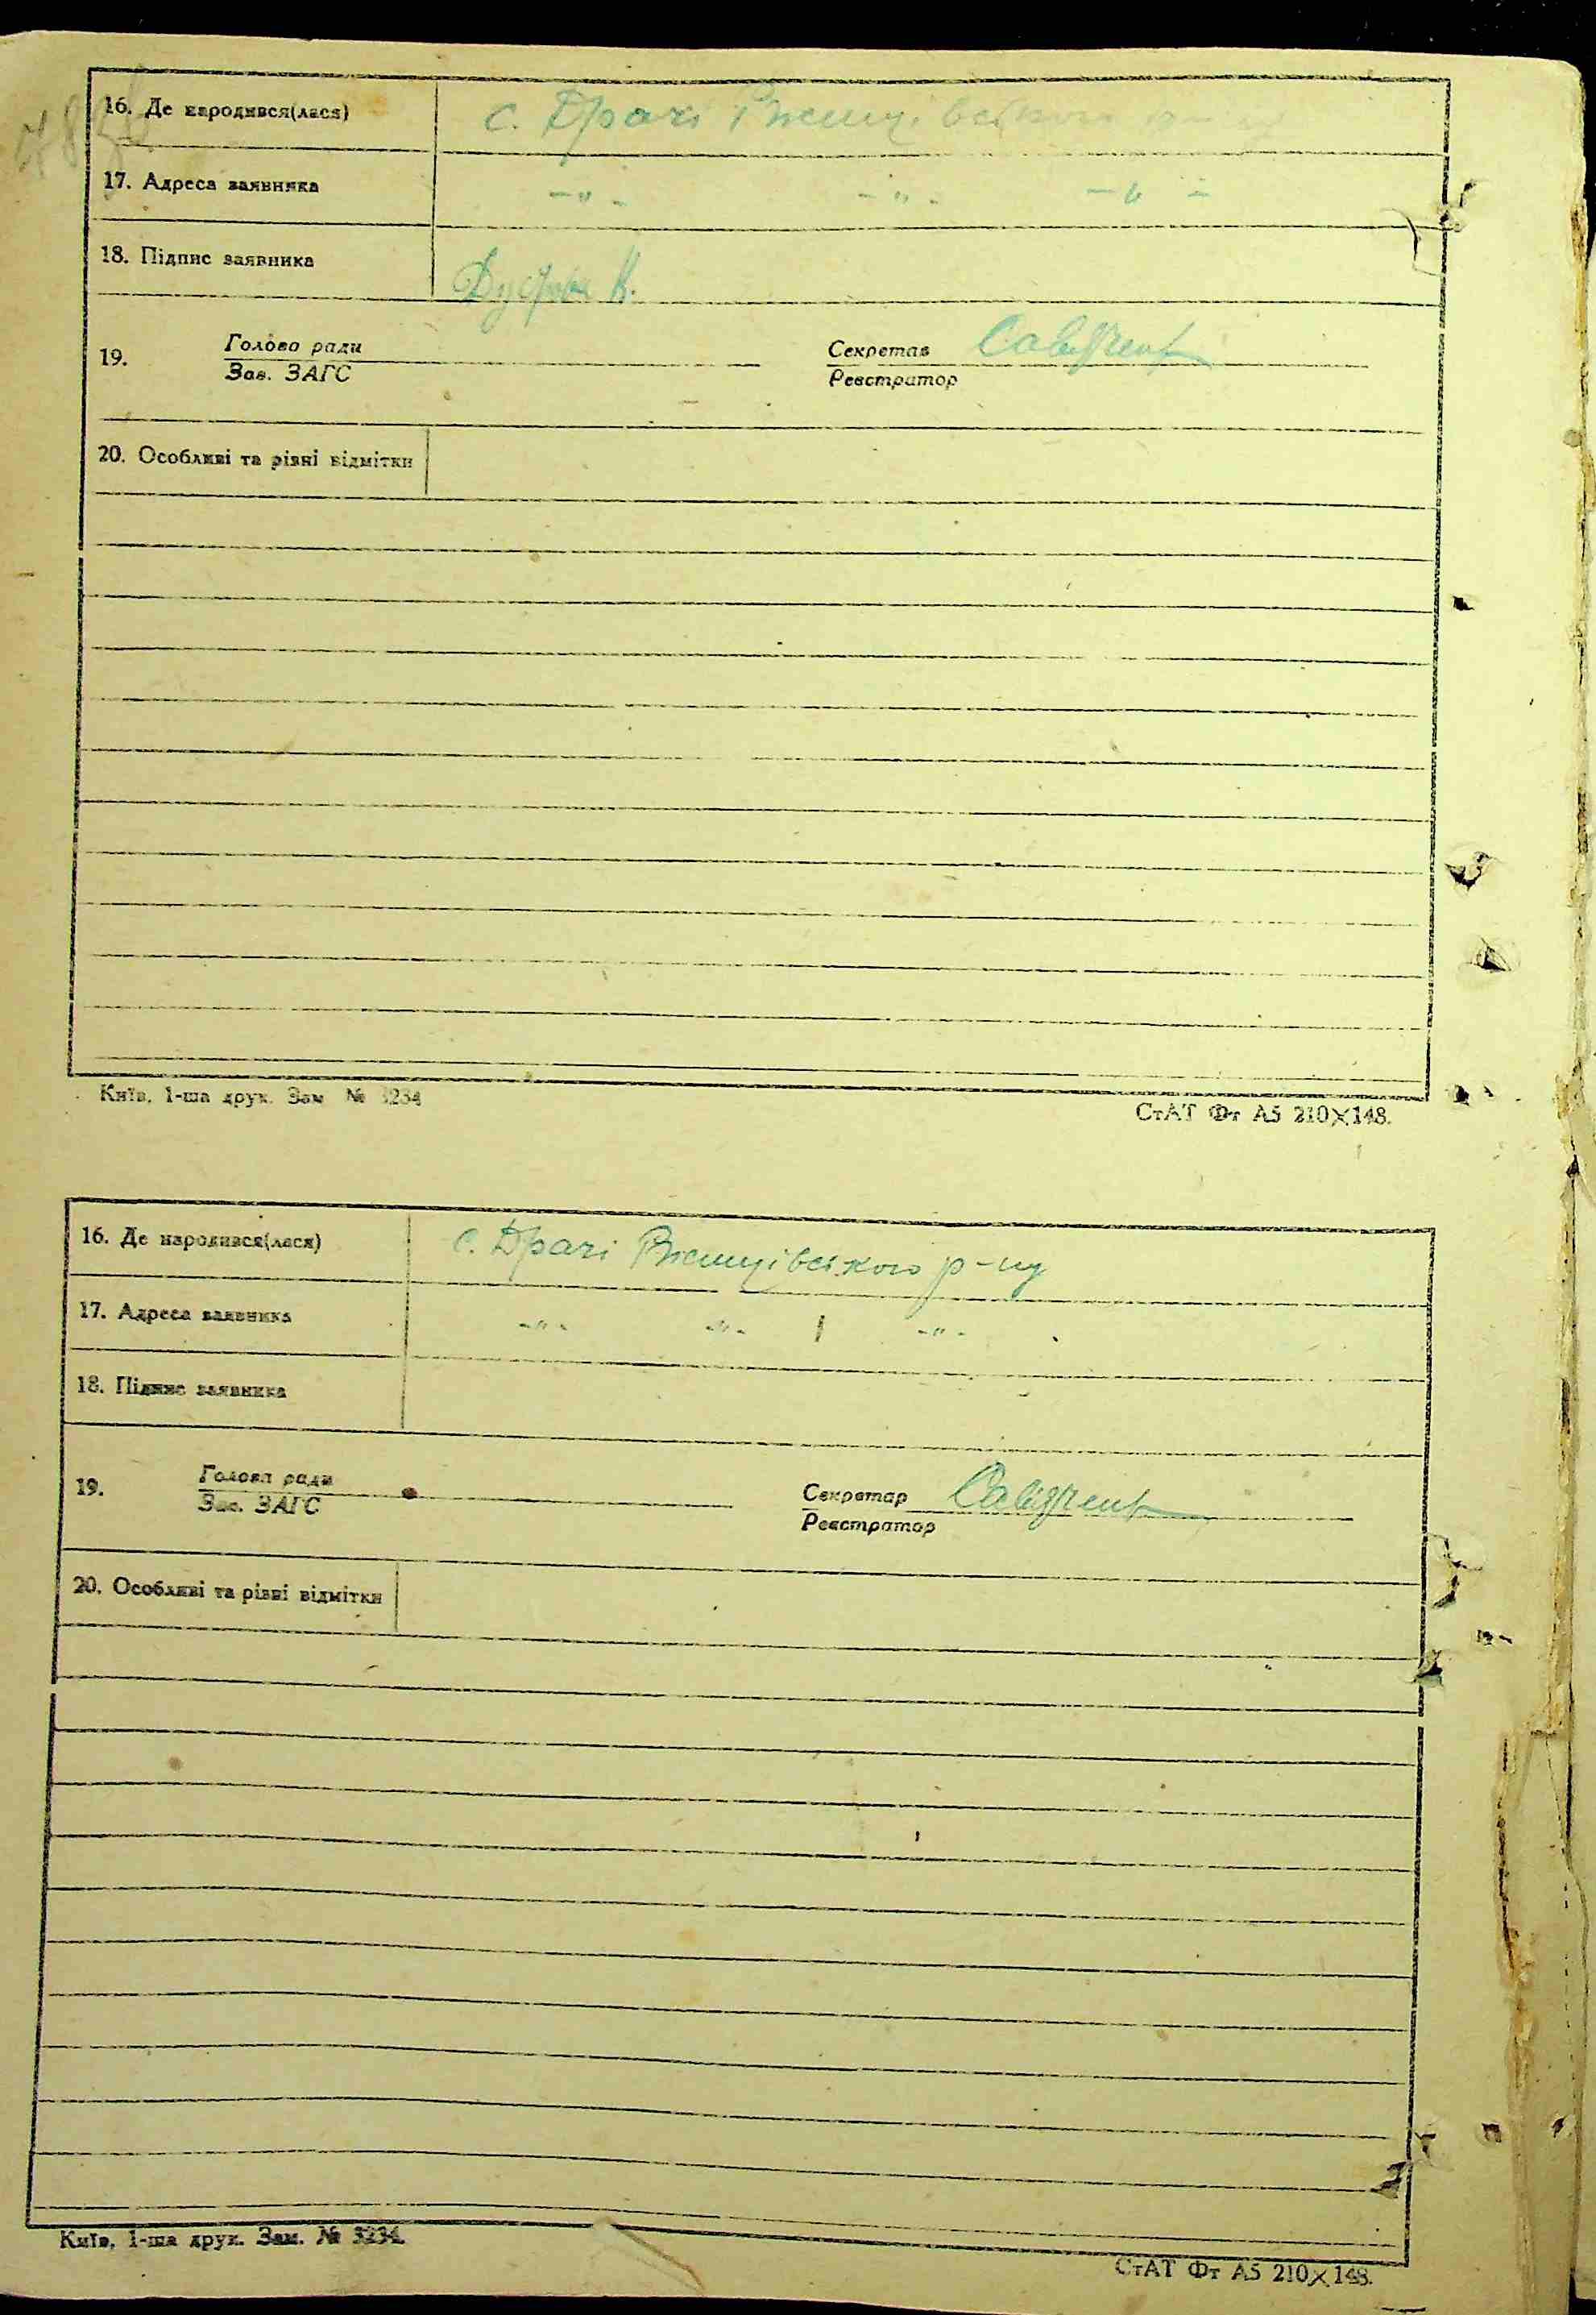 16. Де народився(лася) с. Драчі Ржищівського р-ну
17. Адреса заявника -"- -"- -"-
18. Підпис заявника
19. Голова ради Секретар
Зав. ЗАГС Реєстратор
20. Особливі та різні відмітки
Київ, 1-ша друк. Зам № 3234
СтАТ Фт А5 210×148.
16. Де народився(лася) с. Драчі Ржищівського р-ну
17. Адреса заявника -"- -"- -"-
18. Підпис заявника
19. Голова ради Секретар
Зав. ЗАГС Реєстратор
20. Особливі та різні відмітки
Київ, 1-ша друк. Зам. № 3234.
СтАТ Фт А5 210×148.